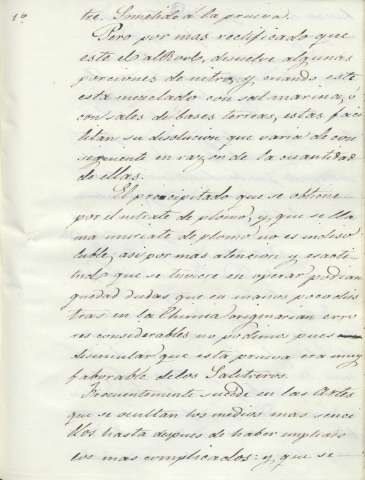 10
tre. Sometido á la prueva.
Pero por mas rectificado que
este el alkool, desuelve algunas
porciones de nitro, y cuando este
esta mezclado con sal marina, ó
con sales de bases terreas, estas faci
litan su disolucion que varia de con
seguiente en razon de la cuantidad
de ellas.
El precipitado que se obtiene
por el nitrate de plomo, y que se lla
ma muriate de plomo no es indiso
luble; asi por mas atencion y exacti
tud que se tuviere en operar podrian
quedad dudas que en manos poco dies
tras en la Chimia originarian erro
res considerables no podemos pues
disimular que esta prueva era muy
faborable de los Salitreros.
Frecuentemente sucede en las Artes
que se ocultan los medios mas senci
llos hasta despues de haber empleado
los mas complicados: y, que se